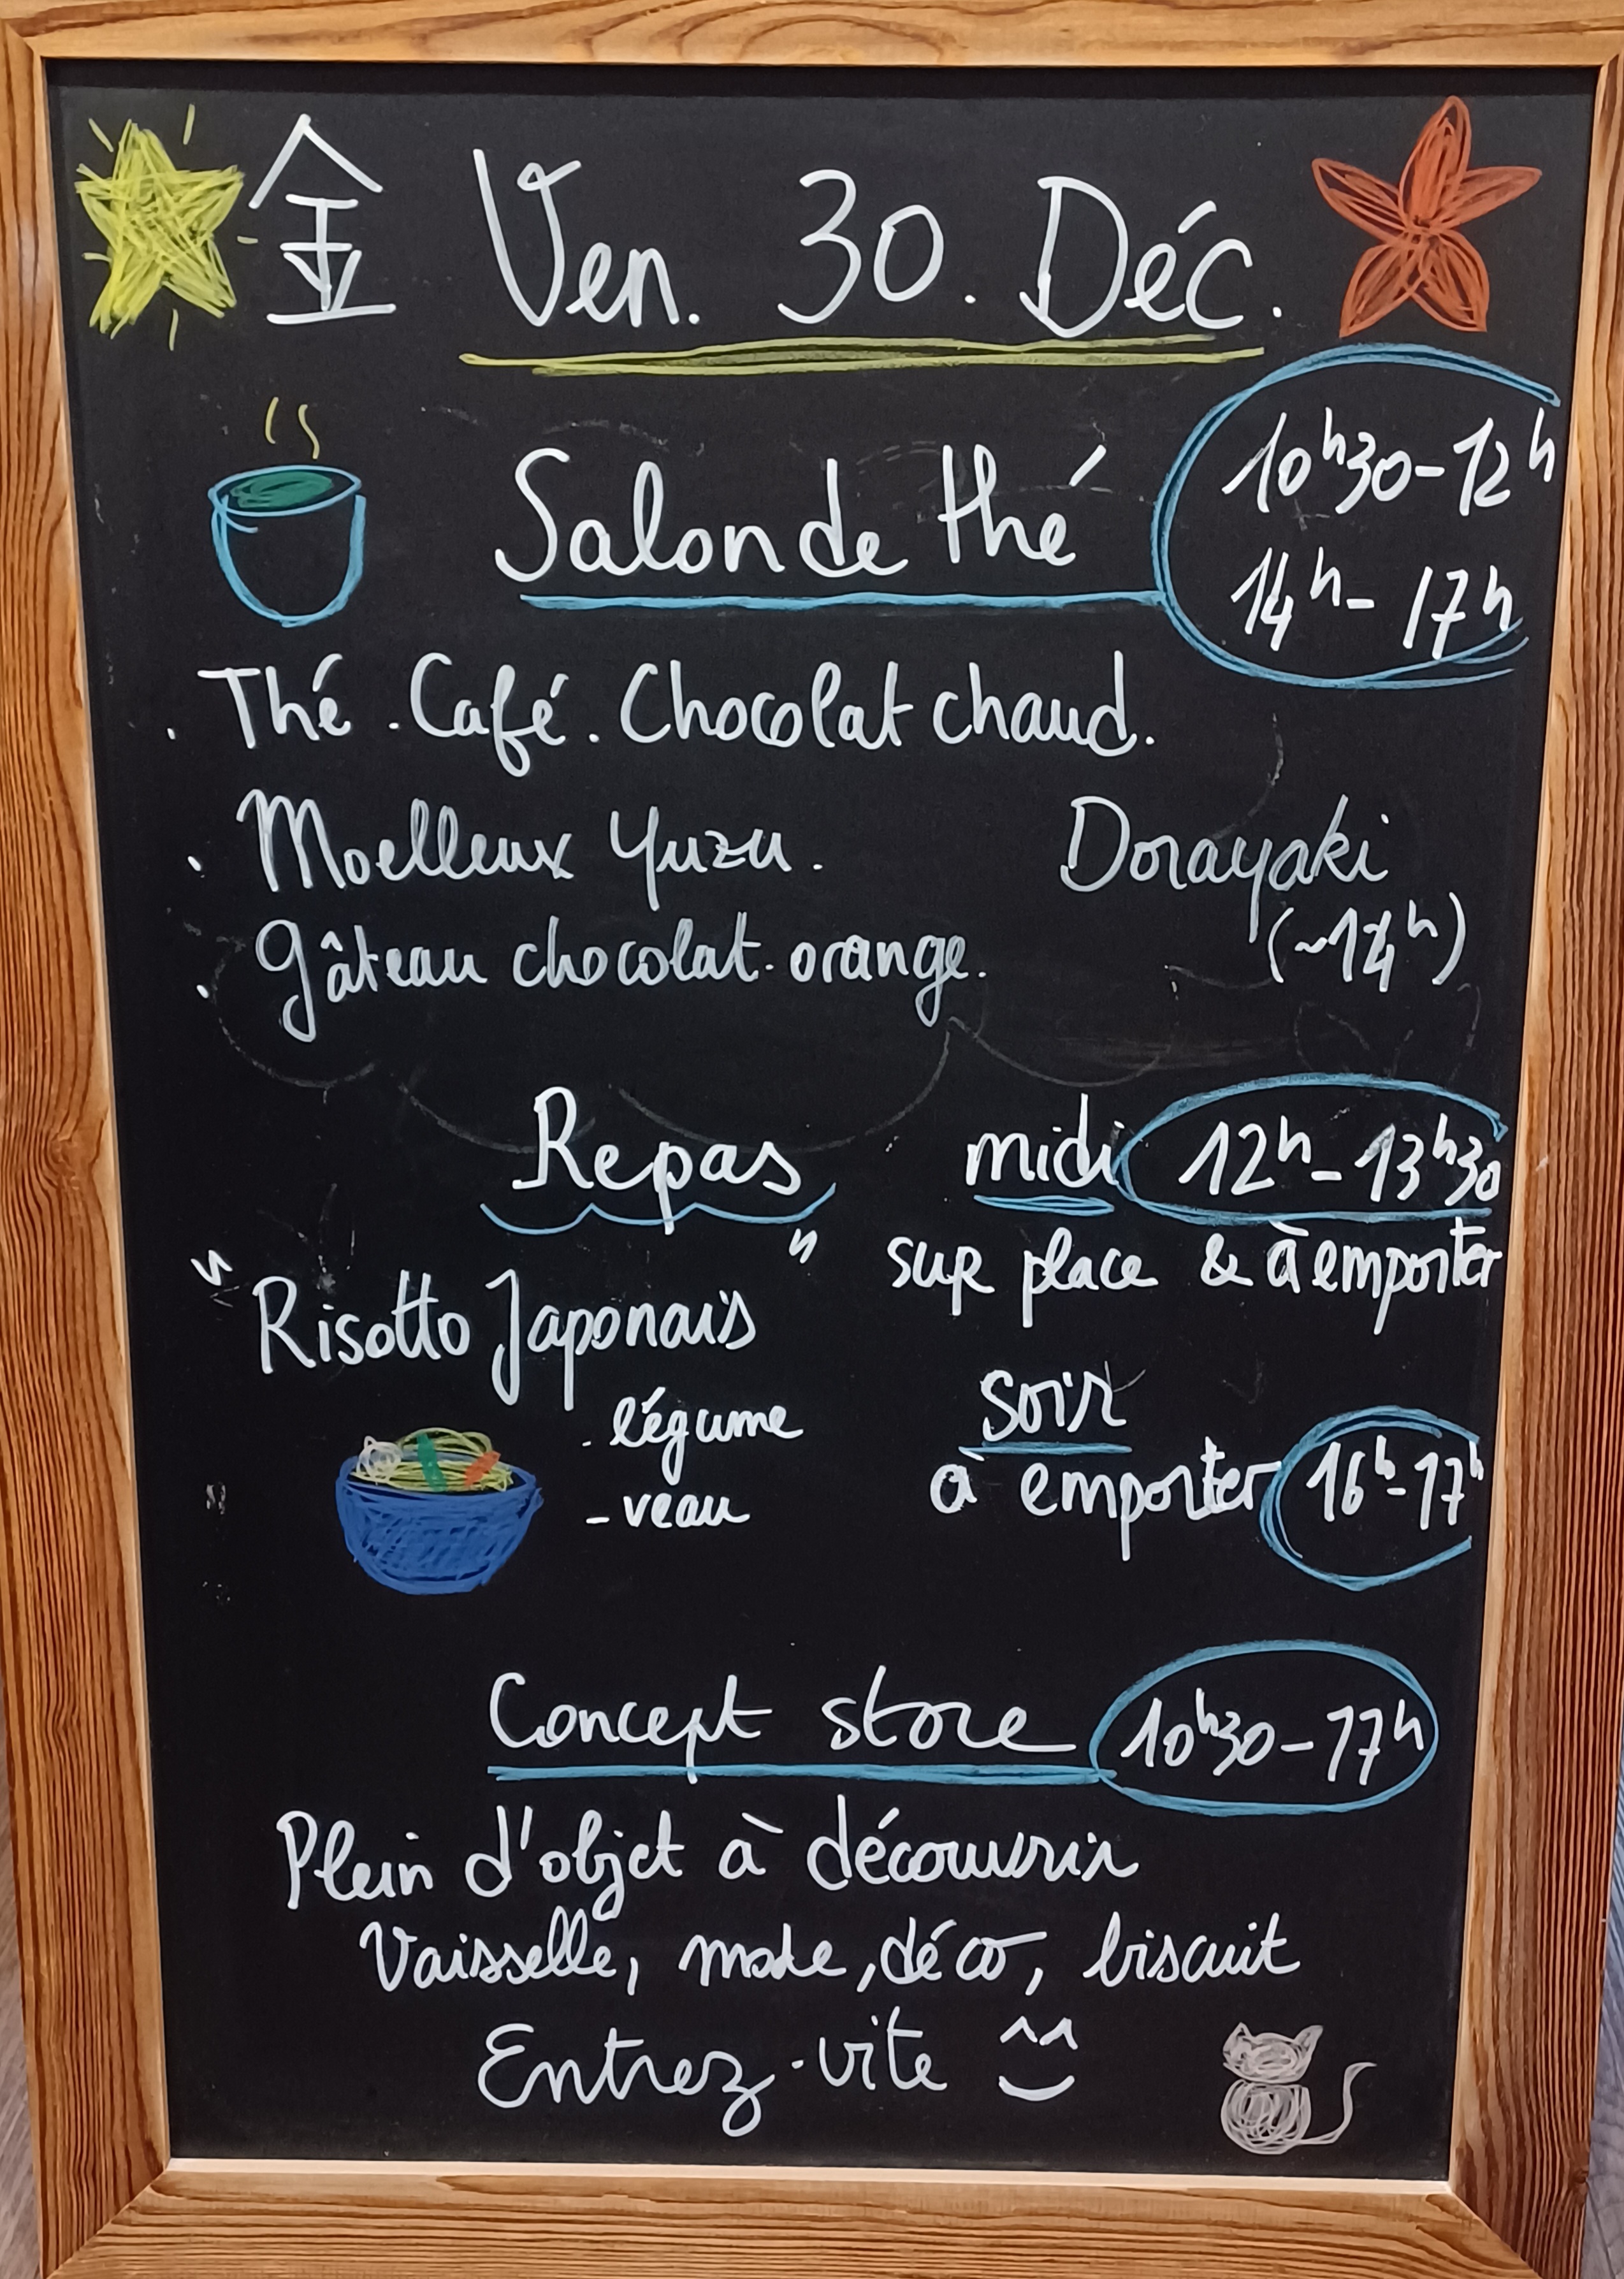 金 Ven. 30. Déc.
Salon de thé
10h30-12h
14h-17h
. Thé . Café . Chocolat chaud.
. Moelleux Yuzu.
Dorayaki
(~14h)
. Gâteau chocolat. orange.
Repas
midi 12h-13h30
sur place & à emporter
"Risotto Japonais"
- légume
- veau
soir
à emporter 16h-17h
Concept store 10h30-17h
Plein d'objet à découvrir
Vaisselle, mode, déco, biscuit
Entrez-vite ^^